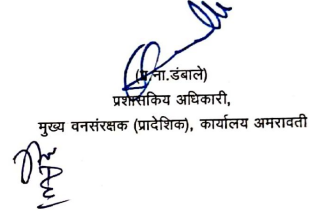 (प्र.ना.डंबाले)
प्रशासकिय अधिकारी,
मुख्य वनसंरक्षक (प्रादेशिक), कार्यालय अमरावती